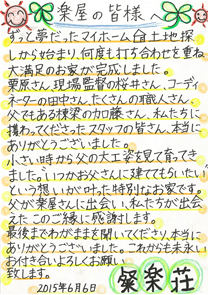 楽屋の皆様へ
ずっと夢だったマイホーム 土地探
しから始まり、何度も打ち合わせを重ね
大満足のお家が完成しました。
栗原さん、現場監督の桜井さん、コーディ
ネーターの田中さん、たくさんの職人さん、
父でもある棟梁の加藤さん、私たちに
携わってくださったスタッフの皆さん、本当に
ありがとうございました。
小さい時から父の大工姿を見て育ってき
ました。"いつかお父さんに建ててもらいたい"
という想いが叶った特別なお家です。
父が楽屋さんに出会い、私たちが出会
えたこのご縁に感謝します。
最後までわがままを聞いてくださり、本当に
ありがとうございました。これからも末永い
お付き合いよろしくお願い
致します。
2015年6月6日
粲楽荘